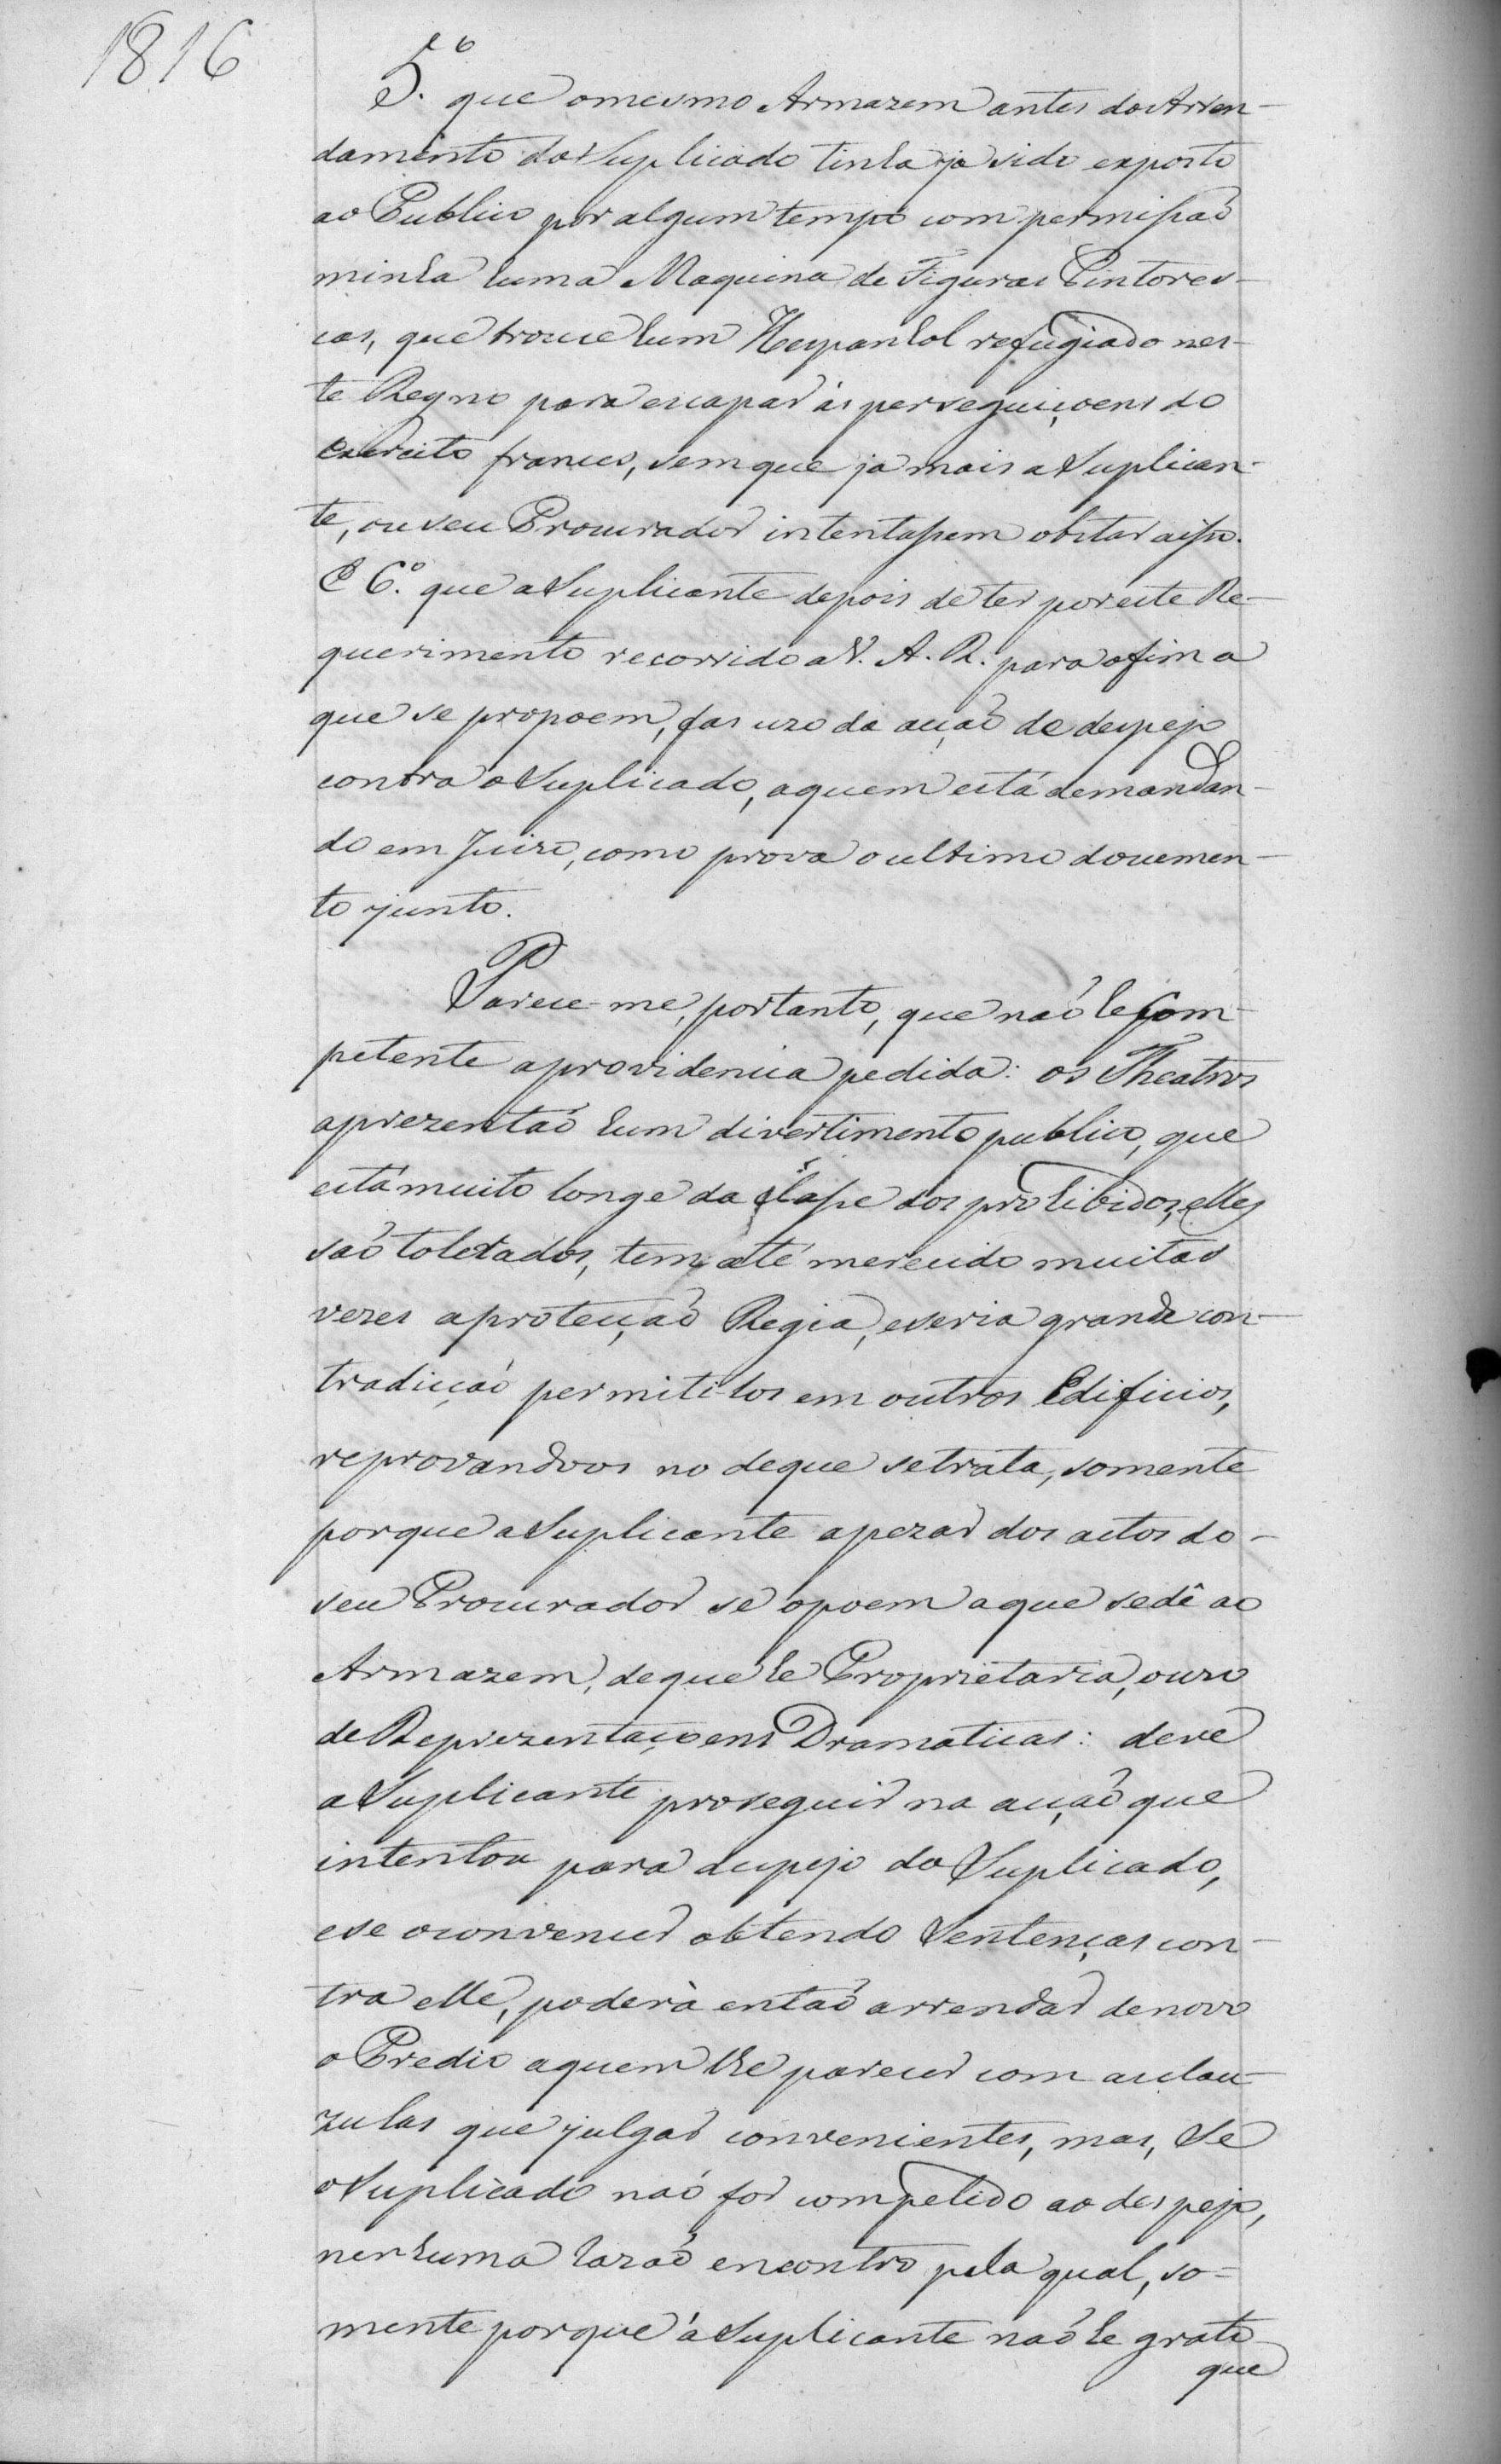 1816
5.º que o mesmo Armazem antes do Arren-
damento do Suplicado tinha ja sido exposto
ao Publico por algum tempo com permissaõ
minha huma Maquina de Figuras Pintores-
cas, que trouce hum Hespanhol refugiado nes-
te Regno para escapar ás perseguiçoens do
exercito frances, sem que ja mais a Suplican-
te, ou seu Procurador intentassem obstar a isso.
E 6.º que a Suplicante depois de ter por este Re-
querimento recorrido a V. A. R. para o fim a
que se propoem, fas uzo da acçaõ de despejo
contra o Suplicado, a quem está demandan-
do em Juizo, como prova o ultimo documen-
to junto.
Parece-me, portanto, que naõ he Com-
petente a providencia pedida: os Theatros
aprezentaõ hum divertimento publico, que
está muito longe da classe dos prohibidos, elles
saõ tolerados, tem até merecido muitas
vezes a protecçaõ Regia, e seria grande con-
tradicçaõ permiti-los em outros Edificios,
reprovandoos no de que se trata, somente
porque a Suplicante apezar dos actos do-
seu Procurador se opoem a que se dê ao
Armazem, de que he Proprietaria, o uzo
de Reprezentaçoens Dramaticas: deve
a Suplicante proseguir na acçaõ que
intentou para despejo do Suplicado,
e se o convencer obtendo Sentenças con-
tra elle, poderà entaõ arrendar de novo
o Predio a quem lhe parecer com as clau-
zulas que julgar convenientes, mas, Se
o Suplicado naõ for compelido ao despejo,
nenhuma razaõ encontro pela qual, so-
mente porque á Suplicante naõ he grato
que